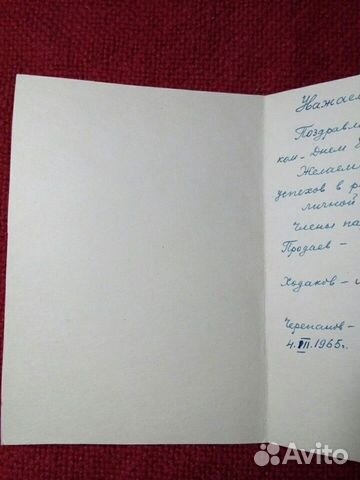 Уважаем
Поздравля
ком - Днем
Желаем
успехов в р
личной
Члены па
Продаев -
Ходаков -
Черепанов -
4. VII. 1965г.
Avito